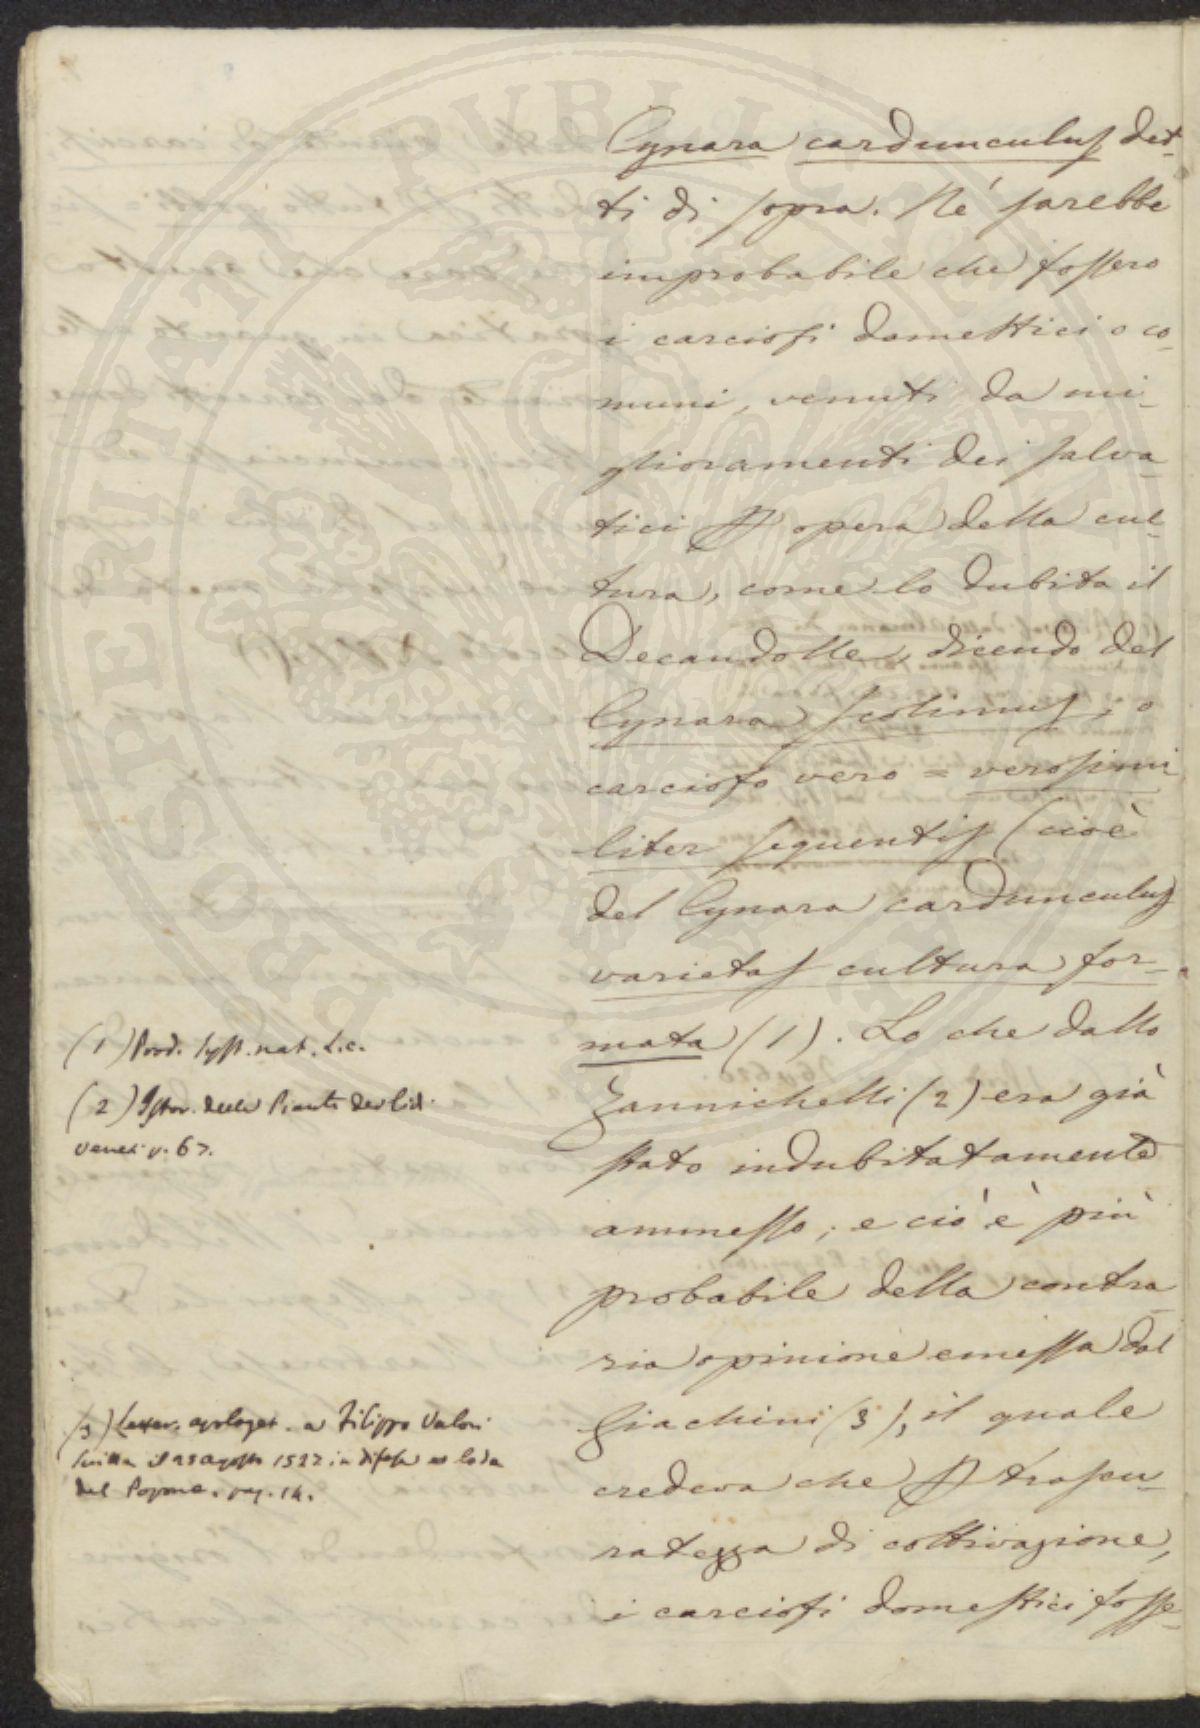 Cynara cardunculus det-
ti di sopra. Né sarebbe
improbabile che fossero
i carciofi domestici o co-
muni, venuti da mi-
glioramenti dei salva-
tici p opera della cul-
tura, come lo dubita il
Decandolle, dicendo del
Cynara Scolimus, o
carciofo vero = verosimi
liter sequentis (cioè
del Cynara cardunculus)
varietas cultura for-
mata (1). Lo che dallo
Zannichelli (2) era già
stato indubitatamente
ammesso; e ciò è più
probabile della contra
ria opinione emessa dal
Giachini (3), il quale
credeva che p trascu-
ratezza di coltivazione,
i carciofi domestici fosse-
(1) Prod. Syst. nat. L.c.
(2) Istor. delle Piante dei Lidi
Veneti p. 67.
(3) Letter. apologet. a Filippo Valori
scritta il 25 agosto 1527 in difesa e lode
del Popone. pag. 14.
PROSPERITATI PVBLICAE